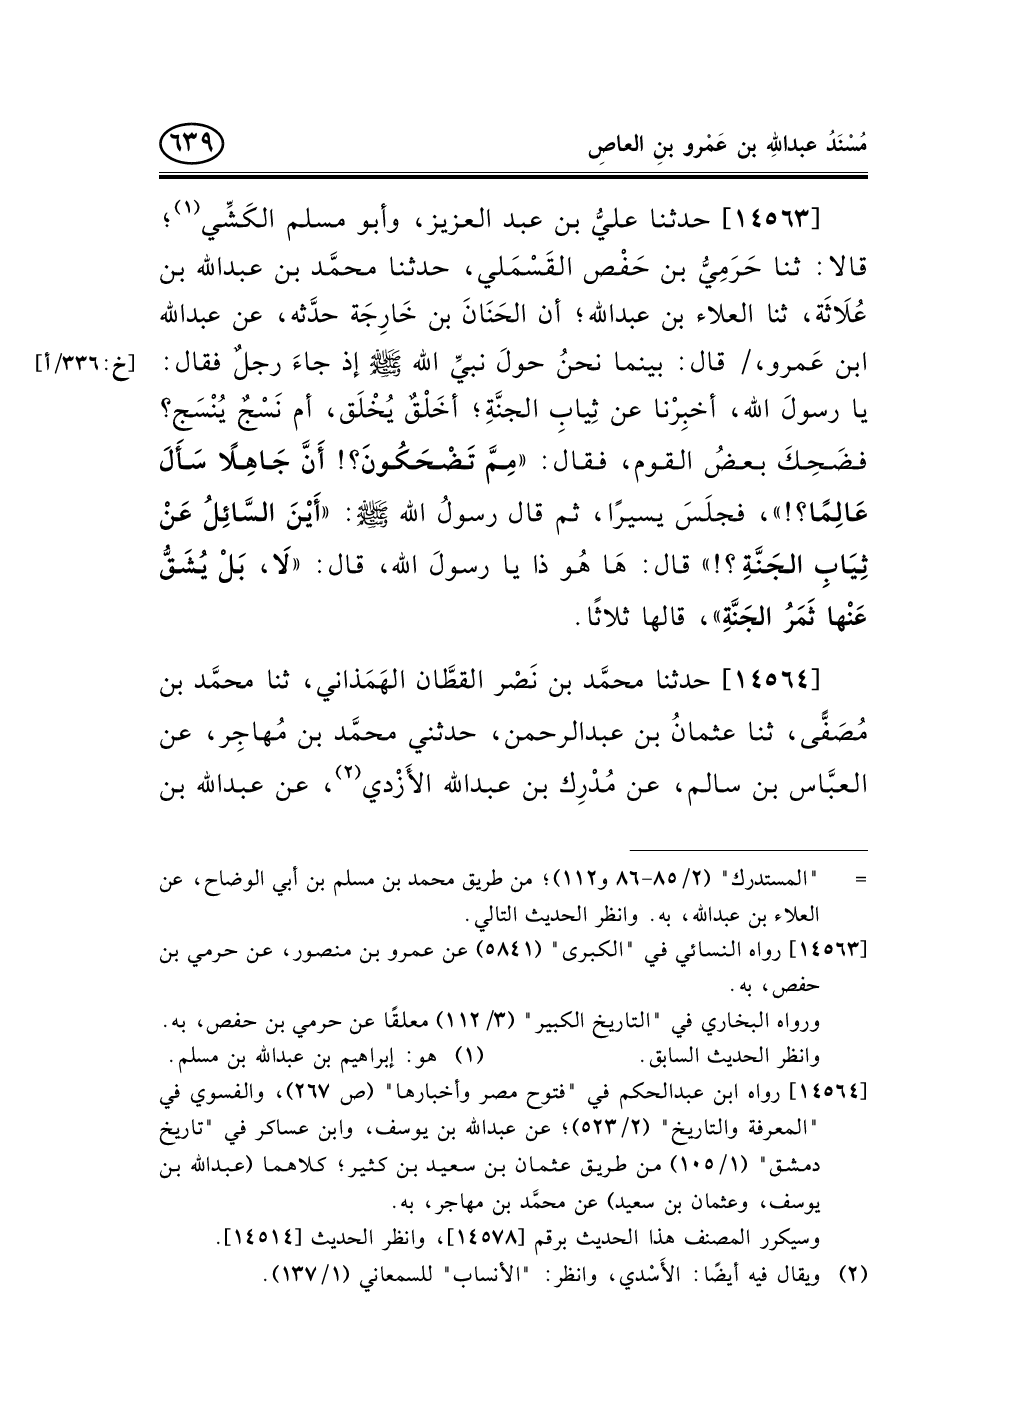 مُسْنَدُ عبداللهِ بن عَمْرو بنِ العاصِ ٦٣٩
[١٤٥٦٣] حدثنا عليُّ بن عبد العزيز، وأبو مسلم الكَشِّي(١)؛
قالا: ثنا حَرَمِيُّ بن حَفْص القَسْمَلي، حدثنا محمَّد بن عبدالله بن
عُلَاثَة، ثنا العلاء بن عبدالله؛ أن الحَنَانَ بن خَارِجَة حدَّثه، عن عبدالله
ابن عَمرو،/ قال: بينما نحنُ حولَ نبيِّ الله ﷺ إذ جاءَ رجلٌ فقال: [خ: ٣٣٦/أ]
يا رسولَ الله، أخبِرْنا عن ثِيابِ الجنَّةِ؛ أخَلْقٌ يُخْلَق، أم نَسْجٌ يُنْسَج؟
فضَحِكَ بعضُ القوم، فقال: «مِمَّ تَضْحَكُونَ؟! أَنَّ جَاهِلًا سَأَلَ
عَالِمًا؟!»، فجلَسَ يسيرًا، ثم قال رسولُ الله ﷺ: «أَيْنَ السَّائِلُ عَنْ
ثِيَابِ الجَنَّةِ؟!» قال: هَا هُو ذا يا رسولَ الله، قال: «لَا، بَلْ يُشَقُّ
عَنْها ثَمَرُ الجَنَّةِ»، قالها ثلاثًا.
[١٤٥٦٤] حدثنا محمَّد بن نَصْر القطَّان الهَمَذاني، ثنا محمَّد بن
مُصَفًّى، ثنا عثمانُ بن عبدالرحمن، حدثني محمَّد بن مُهاجِر، عن
العبَّاس بن سالم، عن مُدْرِك بن عبدالله الأَزْدي(٢)، عن عبدالله بن
= "المستدرك" (٢/ ٨٥-٨٦ و١١٢)؛ من طريق محمد بن مسلم بن أبي الوضاح، عن
العلاء بن عبدالله، به. وانظر الحديث التالي.
[١٤٥٦٣] رواه النسائي في "الكبرى" (٥٨٤١) عن عمرو بن منصور، عن حرمي بن
حفص، به.
ورواه البخاري في "التاريخ الكبير" (٣/ ١١٢) معلقًا عن حرمي بن حفص، به.
وانظر الحديث السابق. (١) هو: إبراهيم بن عبدالله بن مسلم.
[١٤٥٦٤] رواه ابن عبدالحكم في "فتوح مصر وأخبارها" (ص ٢٦٧)، والفسوي في
"المعرفة والتاريخ" (٢/ ٥٢٣)؛ عن عبدالله بن يوسف، وابن عساكر في "تاريخ
دمشق" (١/ ١٠٥) من طريق عثمان بن سعيد بن كثير؛ كلاهما (عبدالله بن
يوسف، وعثمان بن سعيد) عن محمَّد بن مهاجر، به.
وسيكرر المصنف هذا الحديث برقم [١٤٥٧٨]، وانظر الحديث [١٤٥١٤].
(٢) ويقال فيه أيضًا: الأَسْدي، وانظر: "الأنساب" للسمعاني (١/ ١٣٧).